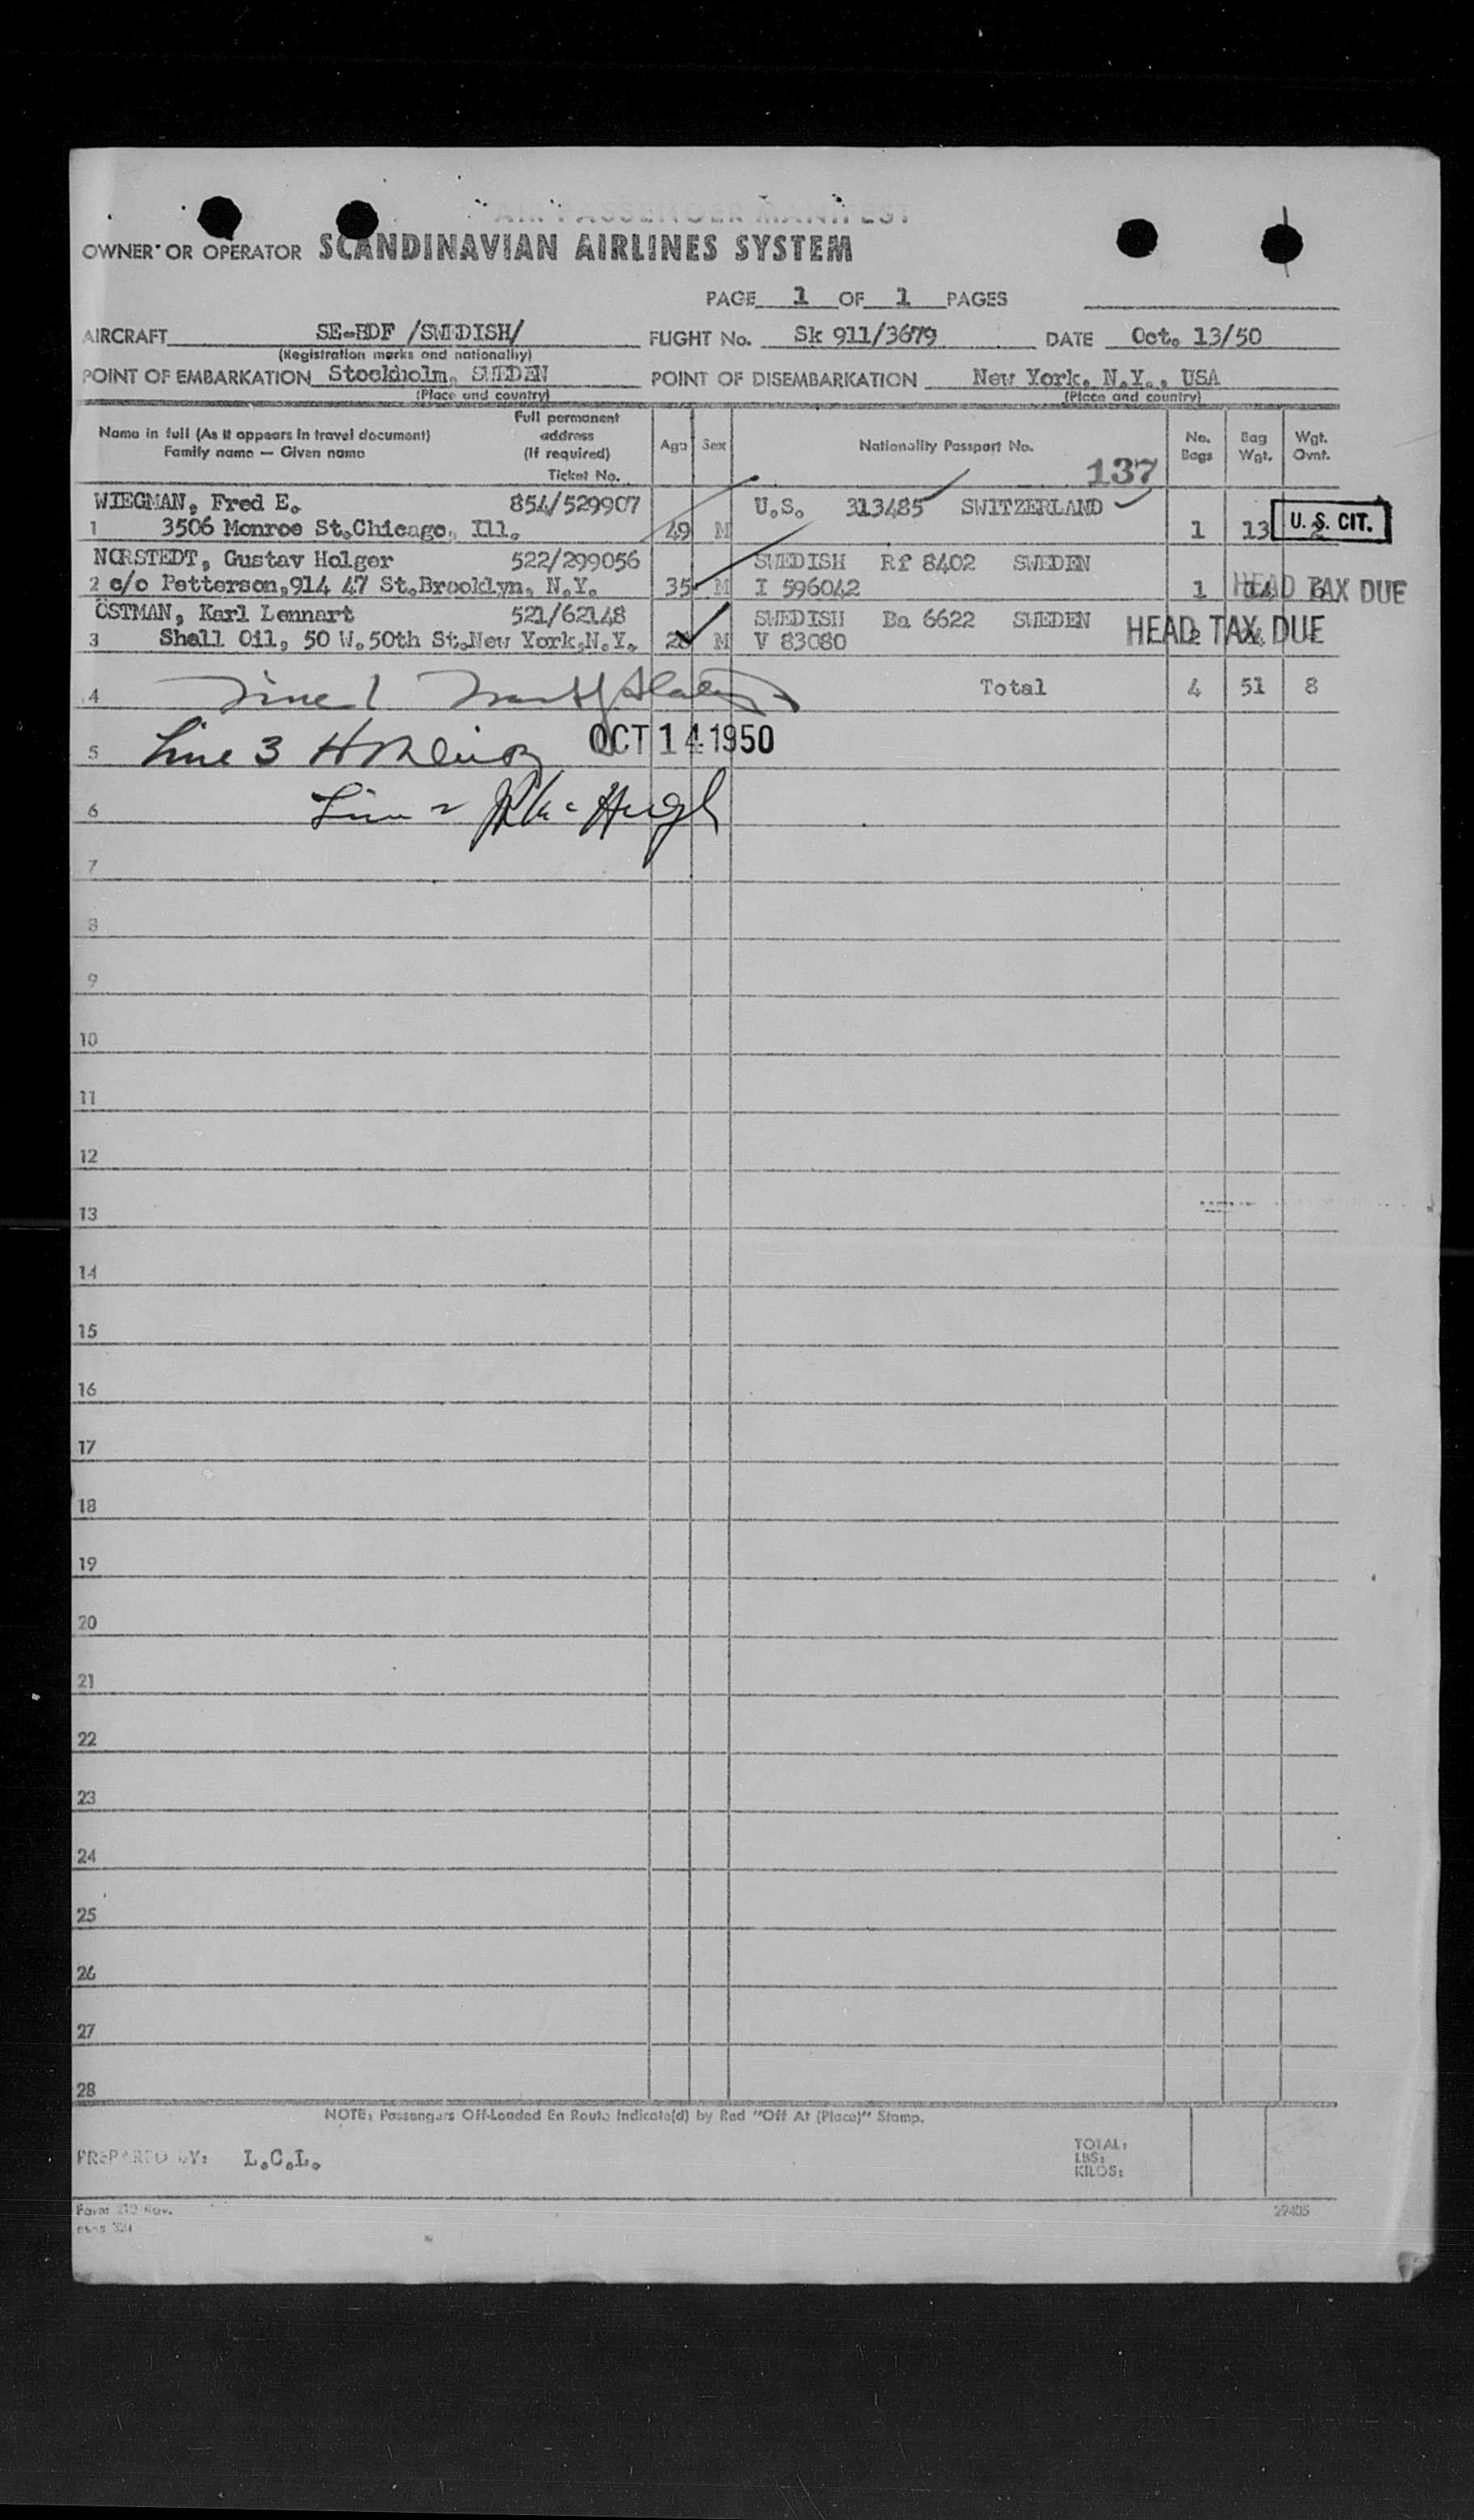 AIR PASSENGER MANIFEST
OWNER OR OPERATOR SCANDINAVIAN AIRLINES SYSTEM
PAGE 1 OF 1 PAGES
AIRCRAFT SE-BDF /SWEDISH/ FLIGHT No. Sk 911/3679 DATE Oct. 13/50
(Registration marks and nationality)
POINT OF EMBARKATION Stockholm, SWEDEN POINT OF DISEMBARKATION New York, N.Y., USA
(Place and country) (Place and country)
Name in full (As it appears in travel document) Family name — Given name Full permanent address (If required) Ticket No. Age Sex Nationality Passport No. No. Bags Bag Wgt. Wgt. Ovnt.
137
WIEGMAN, Fred E. 854/529907 U.S. 313485 SWITZERLAND
1 3506 Monroe St.Chicago, Ill. 49 M 1 13 U. S. CIT.
NORSTEDT, Gustav Holger 522/299056 SWEDISH Rf 8402 SWEDEN
2 c/o Petterson,914 47 St.Brooklyn, N.Y. 35 M I 596042 1 HEAD TAX DUE
ÖSTMAN, Karl Lennart 521/62148 SWEDISH Ba 6622 SWEDEN
3 Shell Oil, 50 W.50th St.New York,N.Y. 28 M V 83080 HEAD TAX DUE
4 Line 1 Total 4 51 8
5 Line 3 OCT 14 1950
6 Line 2 McHugh
7
8
9
10
11
12
13
14
15
16
17
18
19
20
21
22
23
24
25
26
27
28
NOTE: Passengers Off-Loaded En Route Indicate(d) by Red "Off At (Place)" Stamp.
PREPARED BY: L.C.L. TOTAL:
LBS:
KILOS:
Form Rev.